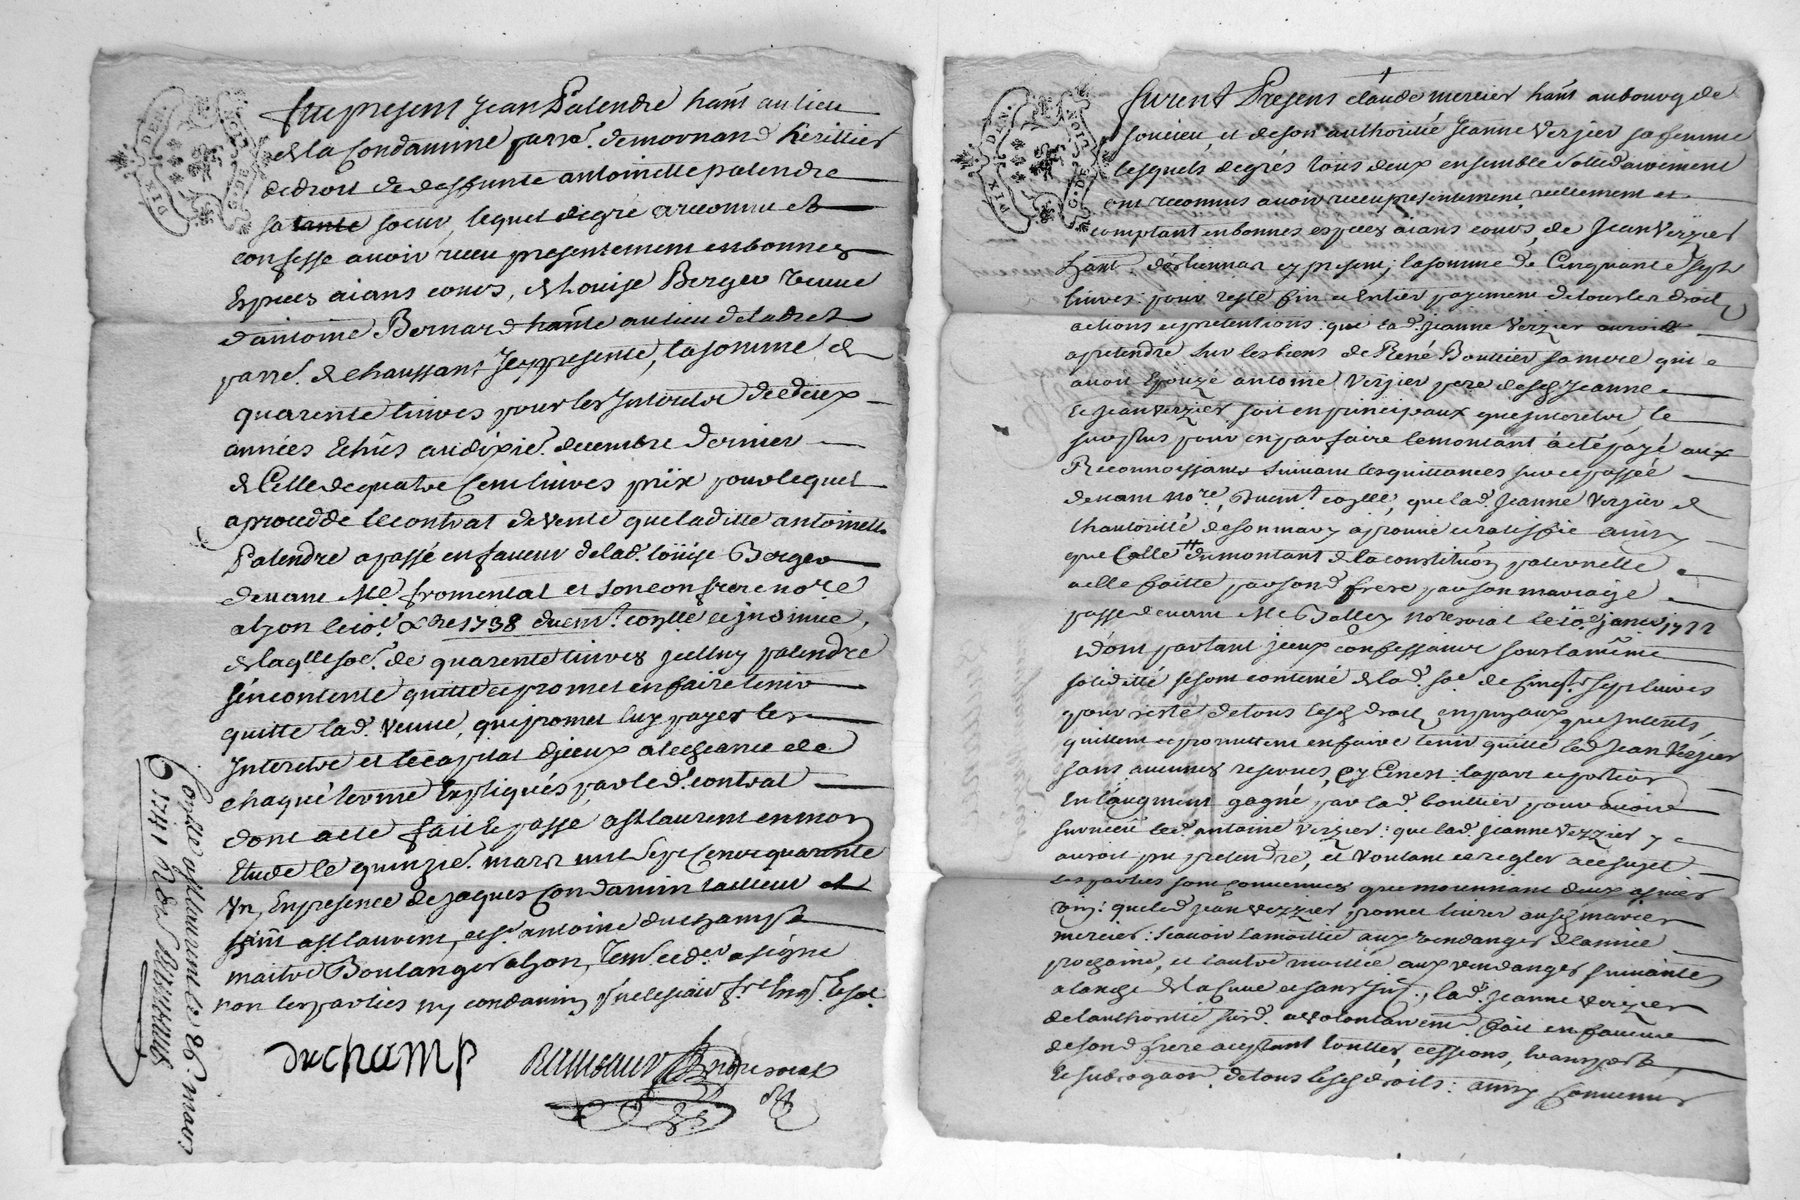 DIX DEN.
G. DE LION
fut present Jean Palendre hant au lieu
de la Condamine parre. de mornand heritier
de droit de deffunte antoinette palendre
sa tante soeur, lequel de gré a reconnu et
confesse avoir receu presentement en bonnes
Especes aians cours, de Louise Berger veuve
d'antoine Bernard hante au lieu de
parre. de Chaussant Icy presente, la somme de
quarente livres pour les Interetz de deux
années Echûs au dixie. decembre dernier
de Celle de quatre Cent livres prix pour lequel
a procedde le contrat de vente que laditte antoinette
Palendre a passé en faveur de lad. Loüise Berger
devant Me. fromental et son confrere nore
a Lyon le 10e xbre 1738 duemt. conlle et insinué,
de laqlle soe. de quarente livres icelluy palendre
s'en contente quitte et promet en faire tenir
quitte lad. veuve, qui promet luy payer les
Interetz et le capital d'iceux a lecheance de
chaque terme Expliqués par le d. contrat
dont acte fait et passé a st laurent en mon
Etude le quinzie. mars mil sept Cent quarante
un, En presence de Jaques Condamin tailleur
hant a st laurent, et sr. antoine duchamp
maitre Boulanger a Lyon, tem. ce der. a signé
non les parties ny condamin
duchamp
Conllé a st laurent le 26e. mars
1741 R
furent Presens claude mercier hant au bourg de
soucieu, et de son authorité Jeanne Verzier sa femme
lesquels de gré tous deux ensemble solidairement
ont reconnus avoir receu presentement reellement et
comptant en bonnes especes aians cours, de Jean Verzier
hant. d'orliennas cy present; la somme de Cinquante Sept
livres pour reste fin et Entier payement de tous les droits
actions et pretentions que lad. Jeanne Verzier auroit
a pretendre sur les biens de René Bouttier sa mere qui
avoit Epouzé antoine Verzier pere desd. Jeanne
et Jean Verzier soit en principaux que interetz le
surplus pour en parfaire le montant a été payé aux
Reconnoissans suivant les quittances sur ce passée
devant nore, duemt. conllé, que lad. Jeanne Verzier de
l'hautorité de son mary aprouve et ratiffie ainsy
que Celle du montant de la constitution paternelle
a elle faitte par son d. frere par son mariage
passe devant Me Balley nore roial le 10e janvier
Dont partant iceux confessants sous la même
soliditté se sont contenté de lad. soe. de Cinqte sept livres
pour reste de tous lesd droits
quittent et promettent en faire tenir quitte led Jean Verzier
sans aucunes reserves, la part et portion
En l'augment gagné par lad. bouttier pour avoir
survecu led. antoine Verzier: que lad. Jeanne Verzier y
auroit pu pretendre, et voulant ce regler a ce sujet
les parties sont convenues que moiennant deux asnées
vin: que led Jean Verzier promet livrer aud marier
mercier: scavoir la moittié aux vendanges de l'année
prochaine, et l'autre moittié aux vendanges suivantes
a l'anche de la Cuve et sans lad. Jeanne Verzier
de l'authorité susd. a volontairemt fait en faveur
de son d frere aceptant touttes cessions, transports,
et subrogaon de tous lesd droits: ainsy Convenus